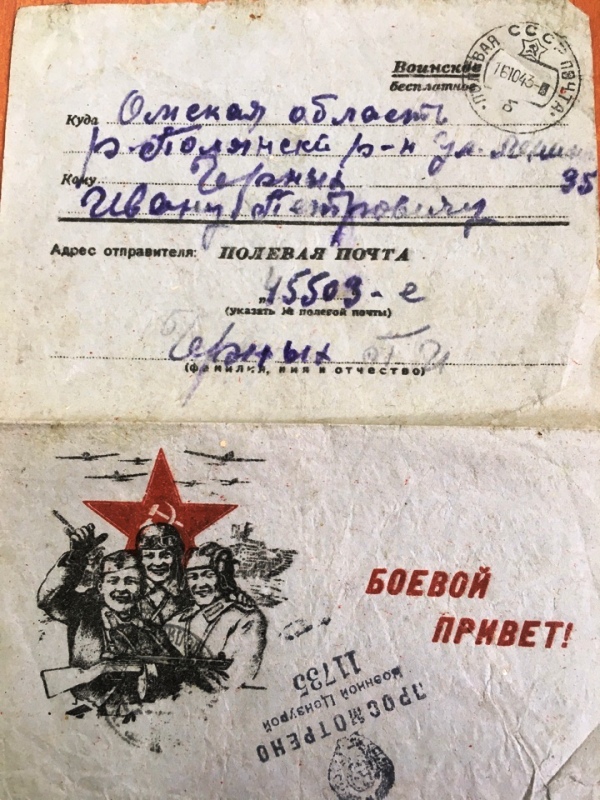 Воинское
бесплатное
СССР ПОЛЕВАЯ ПОЧТА
161043
б
Куда Омская область
р-Полянски р-н ул. 95
Кому Черных
Ивану Петровичу
Адрес отправителя: ПОЛЕВАЯ ПОЧТА
45503-е
(указать № полевой почты)
Черных П И
(фамилия, имя и отчество)
БОЕВОЙ
ПРИВЕТ!
ПРОСМОТРЕНО
Военной Цензурой
11735